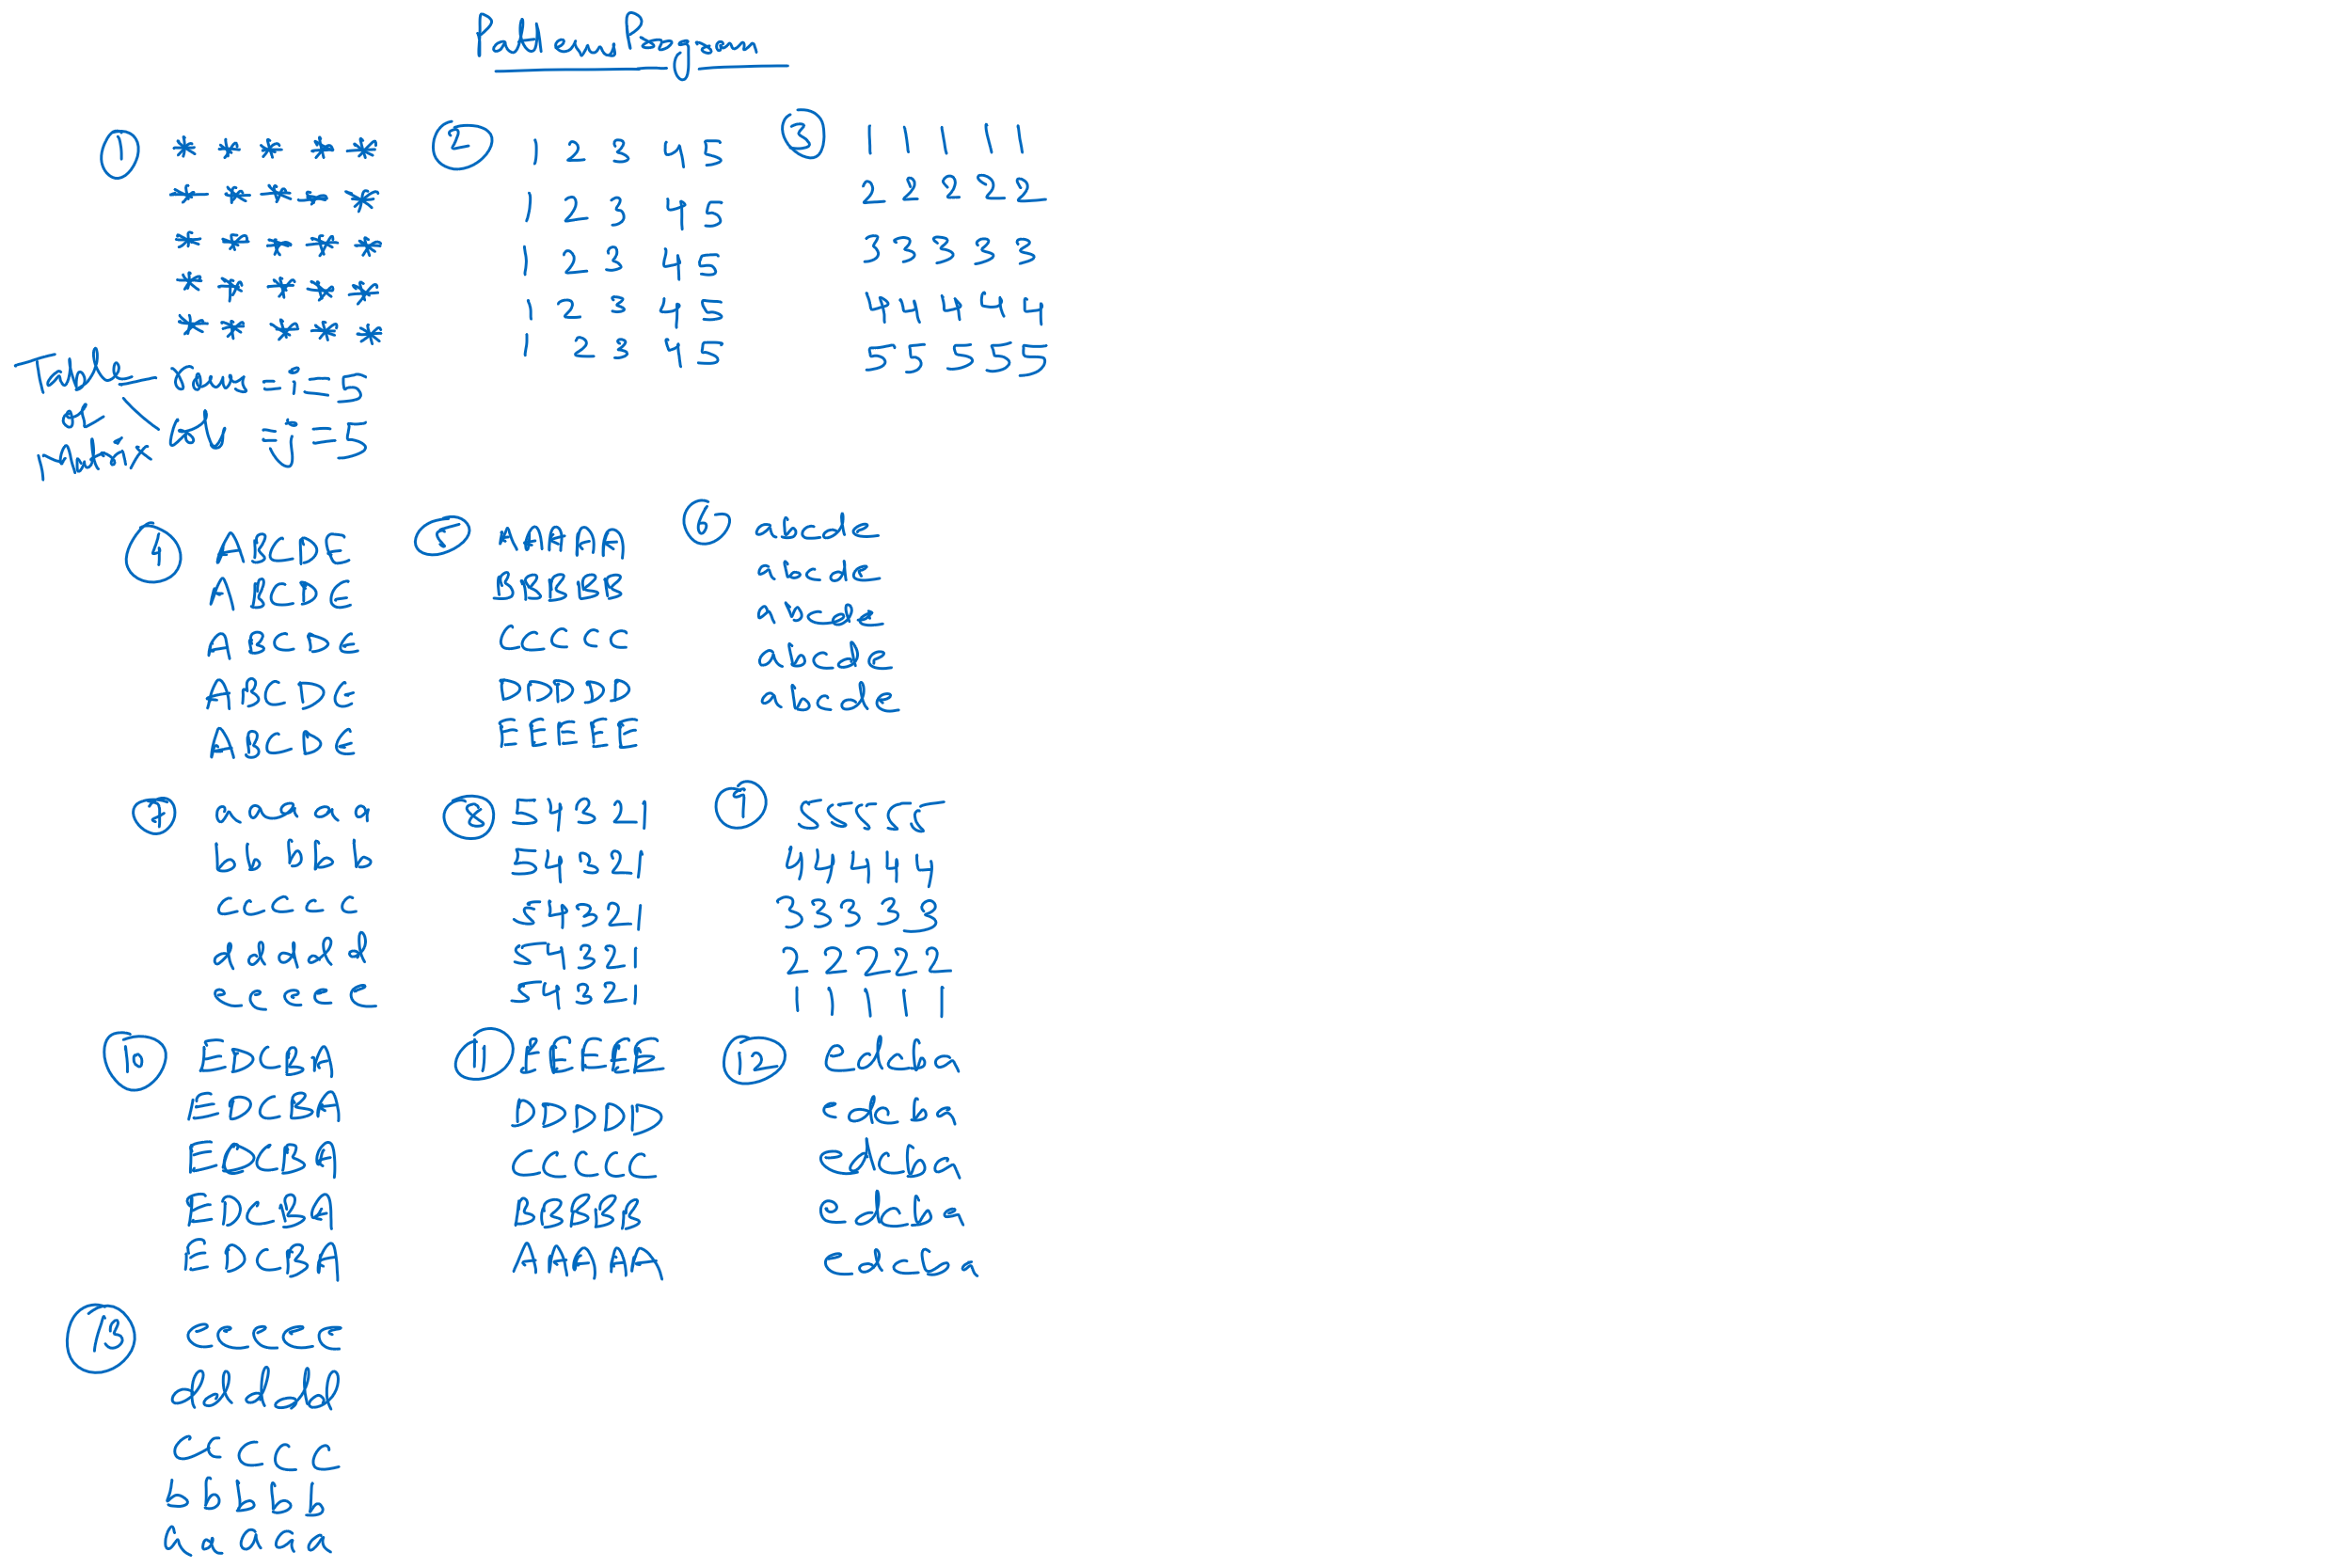 Pattern Program
① * * * * *
* * * * *
* * * * *
* * * * *
* * * * *
Table or Matrix
rows = i = 5
cols = j = 5
② 1 2 3 4 5
1 2 3 4 5
1 2 3 4 5
1 2 3 4 5
1 2 3 4 5
③ 1 1 1 1 1
2 2 2 2 2
3 3 3 3 3
4 4 4 4 4
5 5 5 5 5
④ A B C D E
A B C D E
A B C D E
A B C D E
A B C D E
⑤ A A A A A
B B B B B
C C C C C
D D D D D
E E E E E
⑥ a b c d e
a b c d e
a b c d e
a b c d e
a b c d e
⑦ a a a a a
b b b b b
c c c c c
d d d d d
e e e e e
⑧ 5 4 3 2 1
5 4 3 2 1
5 4 3 2 1
5 4 3 2 1
5 4 3 2 1
⑨ 5 5 5 5 5
4 4 4 4 4
3 3 3 3 3
2 2 2 2 2
1 1 1 1 1
⑩ E D C B A
E D C B A
E D C B A
E D C B A
E D C B A
⑪ E E E E E
D D D D D
C C C C C
B B B B B
A A A A A
⑫ e d c b a
e d c b a
e d c b a
e d c b a
e d c b a
⑬ e e e e e
d d d d d
c c c c c
b b b b b
a a a a a